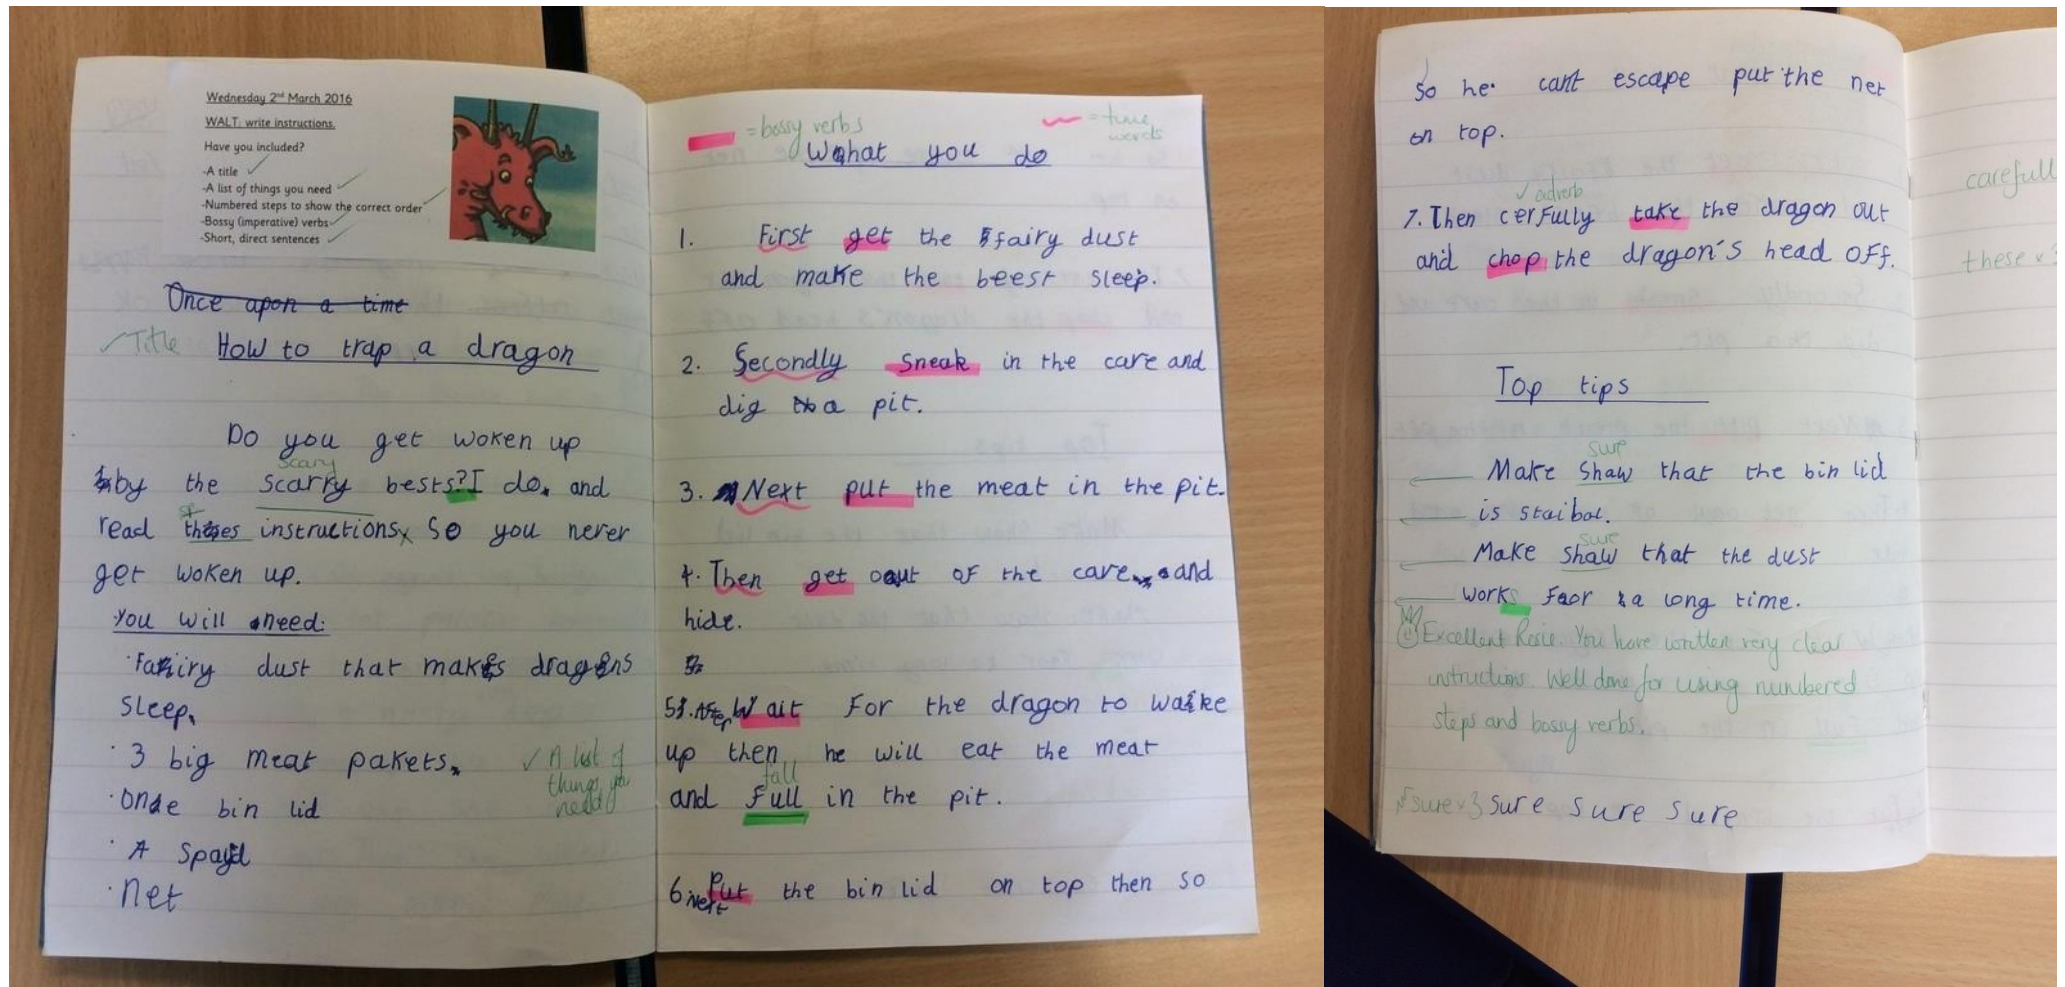 Wednesday 2nd March 2016
WALT: write instructions.
Have you included?
-A title
-A list of things you need
-Numbered steps to show the correct order
-Bossy (imperative) verbs
-Short, direct sentences
Once apon a time
Title How to trap a dragon
Do you get woken up
scary
by the scarry bests? I do. and
sp
read theses instructions So you never
get woken up.
You will need:
·Fairiry dust that makes dragons
sleep.
· 3 big meat pakets.
A list of things you need
·Onde bin lid
· A Spayd
·Net
= bossy verbs
= time words
What you do
1. First get the fairy dust
and make the beest sleep.
2. Secondly sneak in the care and
dig a pit.
3. Next put the meat in the pit.
4. Then get out of the care and
hide.
5. Wait For the dragon to waike
up then he will eat the meat
fall
and full in the pit.
6. Next Put the bin lid on top then so
so he cant escape put the net
on top.
adverb
7. Then cerfully take the dragon out
and chop the dragon's head off.
carefull
these x 3
Top tips
sure
Make shaw that the bin lid
is staibal.
sure
Make shaw that the dust
works Faor a long time.
Excellent Rosie. You have written very clear
instructions. Well done for using numbered
steps and bossy verbs.
sure x 3 sure sure sure